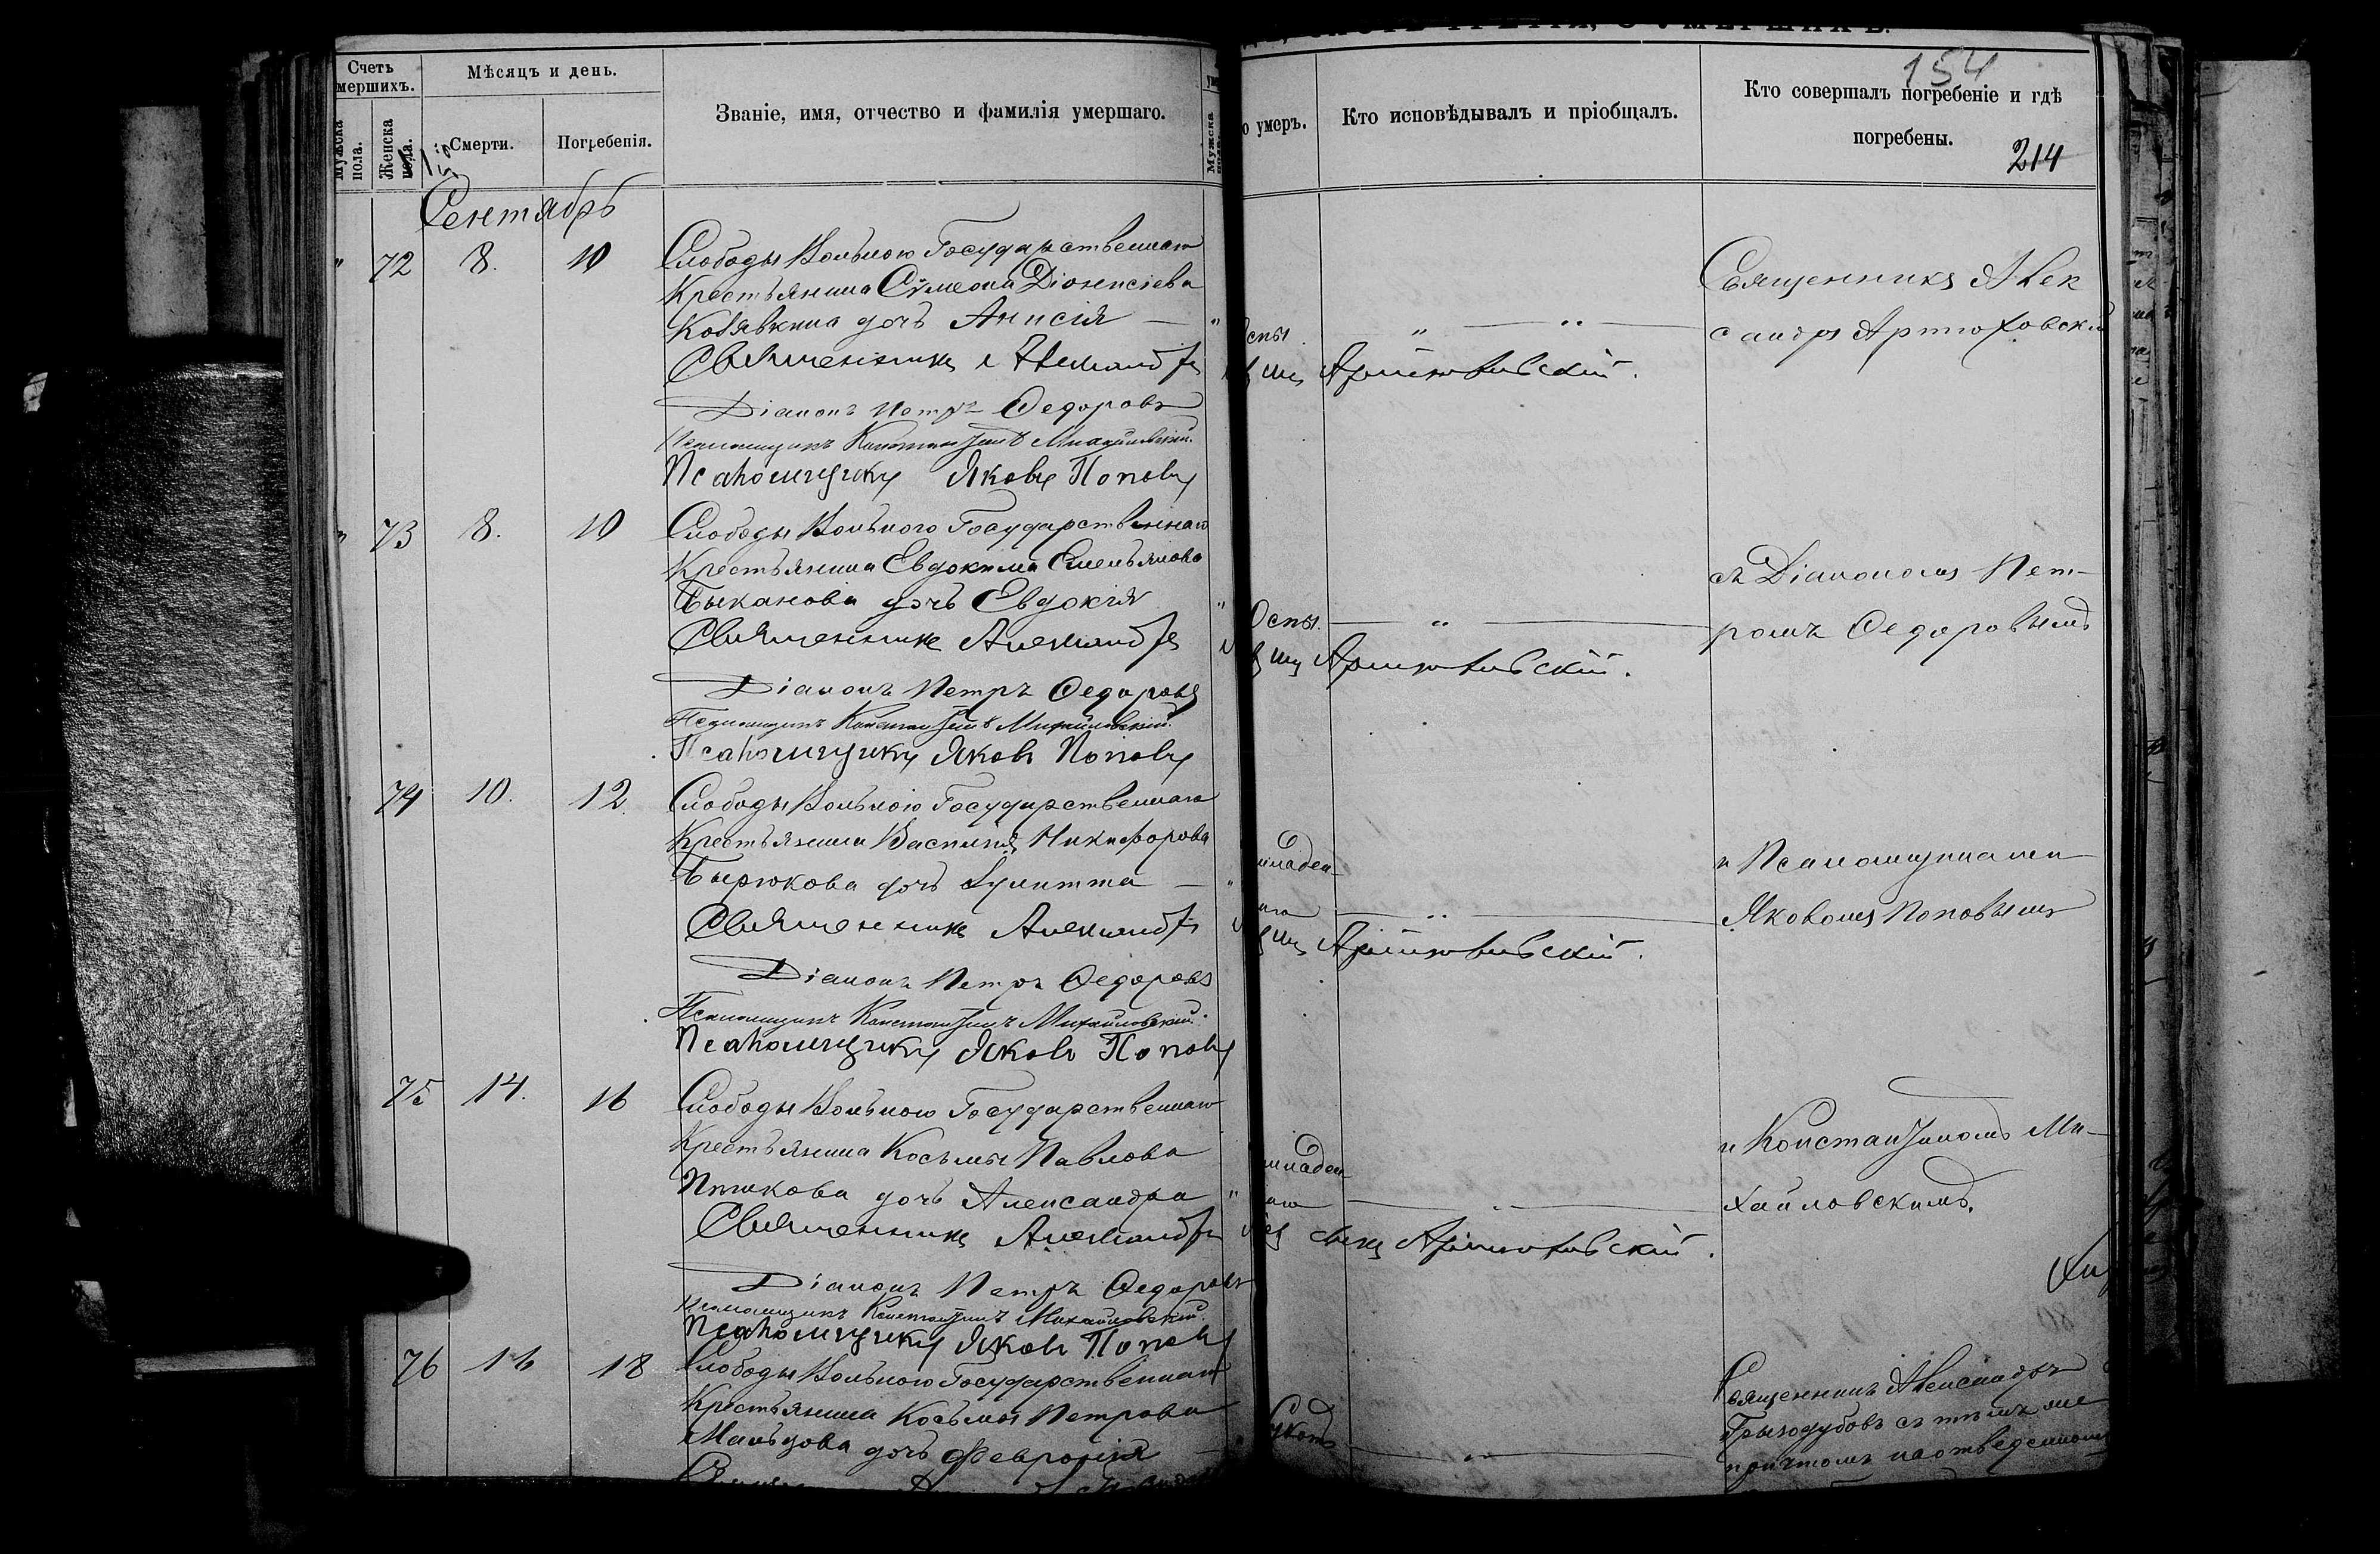 Счетъ
мершихъ.
Мѣсяцъ и день.
Званіе, имя, отчество и фамилія умершаго.
Мужска
пола.
Женска
пола.
Смерти.
Погребенія.
Мужска
Сентябрь
72 8. 10 Слободы Вольного Государственнаго
Крестьянина Сѵмеона Діонисіева
Кобявкина дочь Анисія
Священникъ Александръ
Діаконъ Петръ Федоровъ
Псаломщикъ Константинъ Михайловскій.
Псаломщикъ Яковъ Поповъ
73 8. 10 Слободы Вольного Государственнаго
Крестьянина Евдокима Емельянова
Быканова дочь Евдокія
Священникъ Александръ
Діаконъ Петръ Федоровъ
Псаломщикъ Константинъ Михайловскій.
Псаломщикъ Яковъ Поповъ
74 10. 12. Слободы Вольного Государственнаго
Крестьянина Василія Никифорова
Бирюкова дочь Іулитта
Священникъ Александръ
Діаконъ Петръ Федоровъ
Псаломщикъ Константинъ Михайловскій.
Псаломщикъ Яковъ Поповъ
75 14. 16 Слободы Вольного Государственнаго
Крестьянина Косьмы Павлова
дочь Александра
Священникъ Александръ
Діаконъ Петръ Федоровъ
Псаломщикъ Константинъ Михайловскій.
Псаломщикъ Яковъ Поповъ
76 16 18 Слободы Вольного Государственнаго
Крестьянина Косьмы Петрова
Мальцова дочь Февронія
154
о умеръ.
Кто исповѣдывалъ и пріобщалъ.
Кто совершалъ погребеніе и гдѣ
погребены.
214
Священникъ Алек
сандръ Артюховскій
Артюховскій.
съ Діакономъ Пет-
Оспы.
ромъ Федоровымъ
Артюховскій.
младен-
и Псаломщиками
Яковомъ Поповымъ
Артюховскій.
и Константиномъ Ми-
младен
хайловскимъ.
Артюховскій.
Священникъ Александръ
Грызодубовъ съ тѣмъ же
причтомъ на отведенномъ